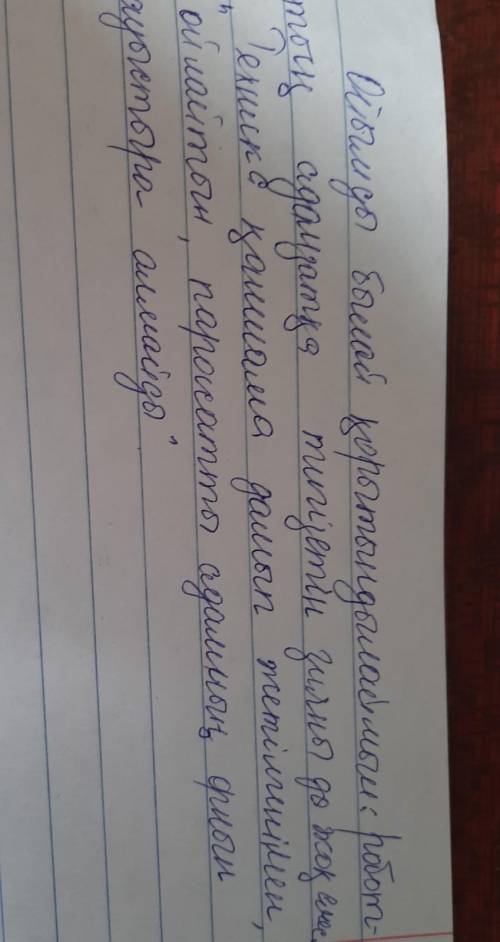 Ойымды былай қорытындылаймын: робот-
тың адамзатқа тигізетін зияны да жоқ емес
"Техника қаншама дамып жетілгенімен,
ойлайтын, парасатты адамның орнын
ауыстыра алмайды"